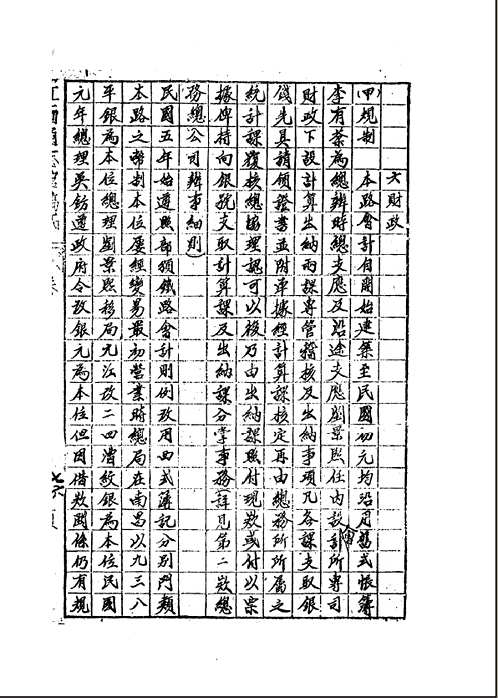 六財政
(甲)規制　本路會計自開始建築至民國初元均沿用舊式帳簿
李有棻為總辦時總支應及沿途支應劉景熙任內設計會所專司
財政下設計算出納兩課專管稽核及出納事項凡各課支取銀
錢先具請領證書並附單據經計算課核定再由總務所所屬之
統計課覆核總協理認可以後乃由出納課照付現款或付以票
據俾持向銀號支取計算課及出納課分掌事務詳見第二款總
務總公司辦事細則)
民國五年始遵照部頒鐵路會計則例改用西式簿記分別門類
本路之幣制本位屢經變易最初營業時總局在南昌以九三八
平銀為本位總理劉景熙移局九江改二四漕紋銀為本位民國
元年總理吳鈁遵政府令改銀元為本位但因借款關係仍有規